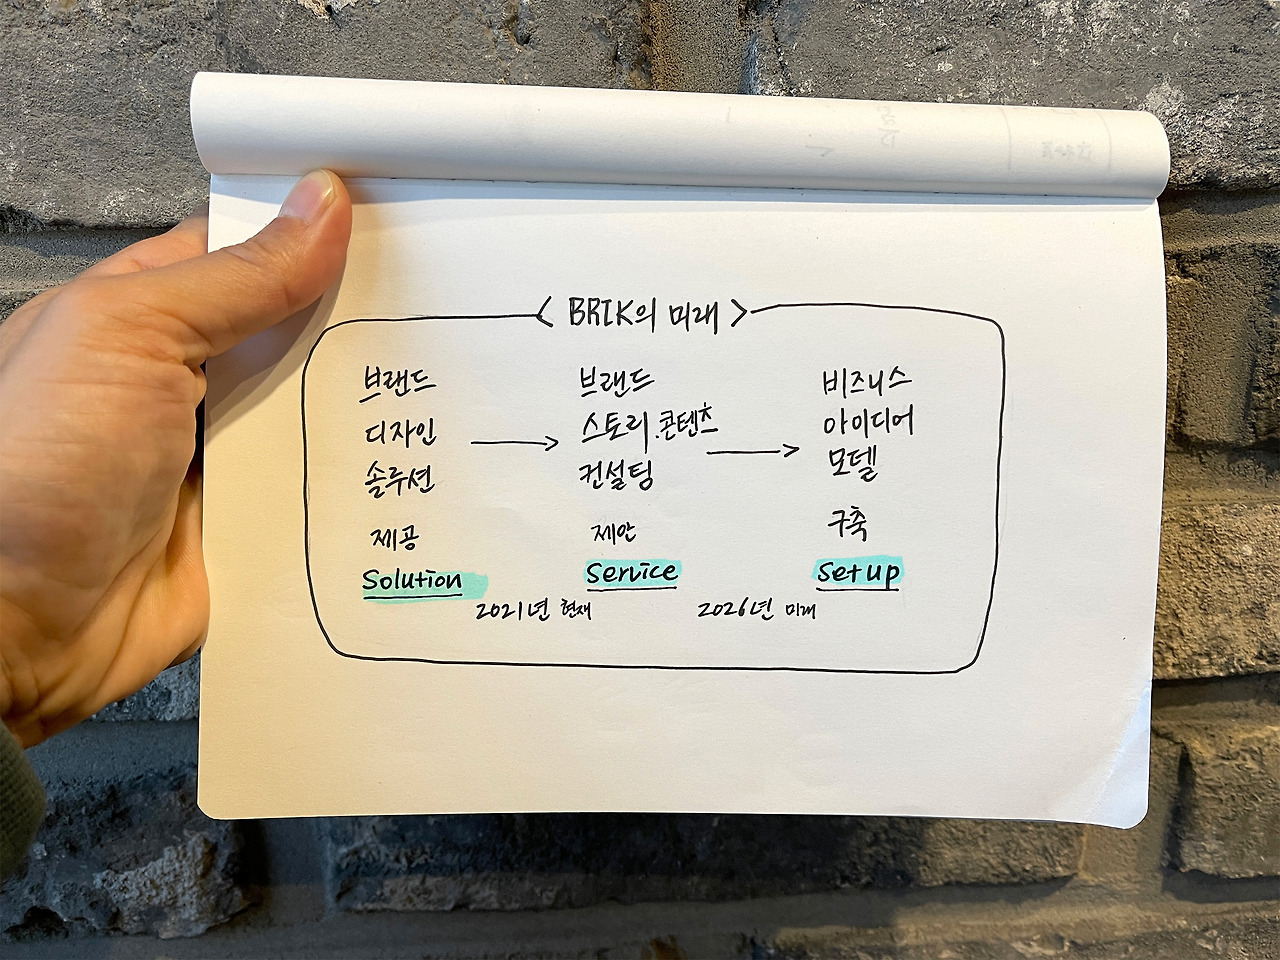 < BRIK의 미래 >
브랜드
디자인
솔루션
제공
Solution
브랜드
스토리.콘텐츠
컨설팅
제안
Service
비즈니스
아이디어
모델
구축
Set up
2021년 현재
2026년 미래